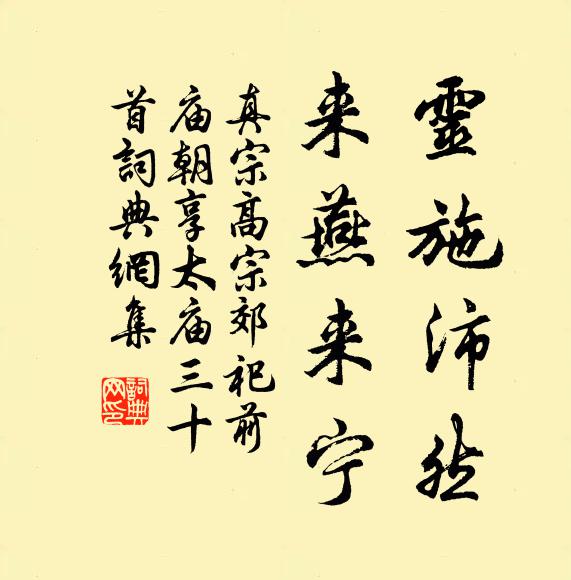 靈施沛然
来燕来宁
真宗高宗郊祀前
庙朝享太庙三十
首詞典網集
詞典网印